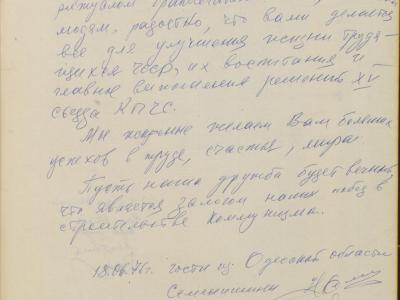 людям, радостно, что вами делается
все для улучшения жизни трудя-
щихся ЧССР, их воспитания и
главное выполнения решений XV
съезда КПЧС.
Мы искренне желаем Вам больших
успехов в труде, счастья, мира.
Пусть наша дружба будет вечной,
что является залогом наших побед в
строительстве Коммунизма.
18.06.76г. гости из Одесской области